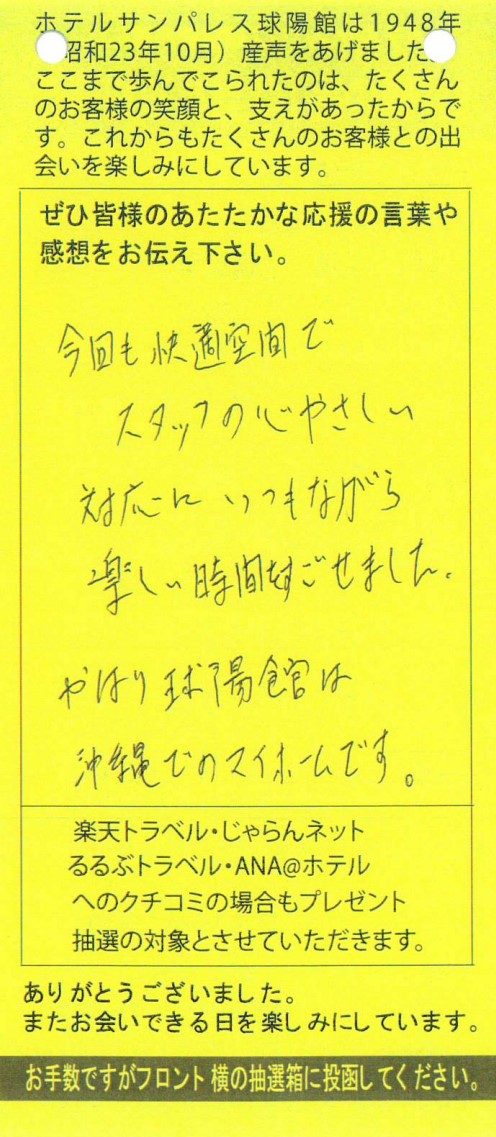 ホテルサンパレス球陽館は1948年
昭和23年10月）産声をあげました
ここまで歩んでこられたのは、たくさん
のお客様の笑顔と、支えがあったからで
す。これからもたくさんのお客様との出
会いを楽しみにしています。
ぜひ皆様のあたたかな応援の言葉や
感想をお伝え下さい。
今回も快適空間で
スタッフの心やさしい
対応に いつもながら
楽しい時間をすごせました。
やはり球陽館は
沖縄でのマイホームです。
楽天トラベル・じゃらんネット
るるぶトラベル・ANA@ホテル
へのクチコミの場合もプレゼント
抽選の対象とさせていただきます。
ありがとうございました。
またお会いできる日を楽しみにしています。
お手数ですがフロント横の抽選箱に投函してください。